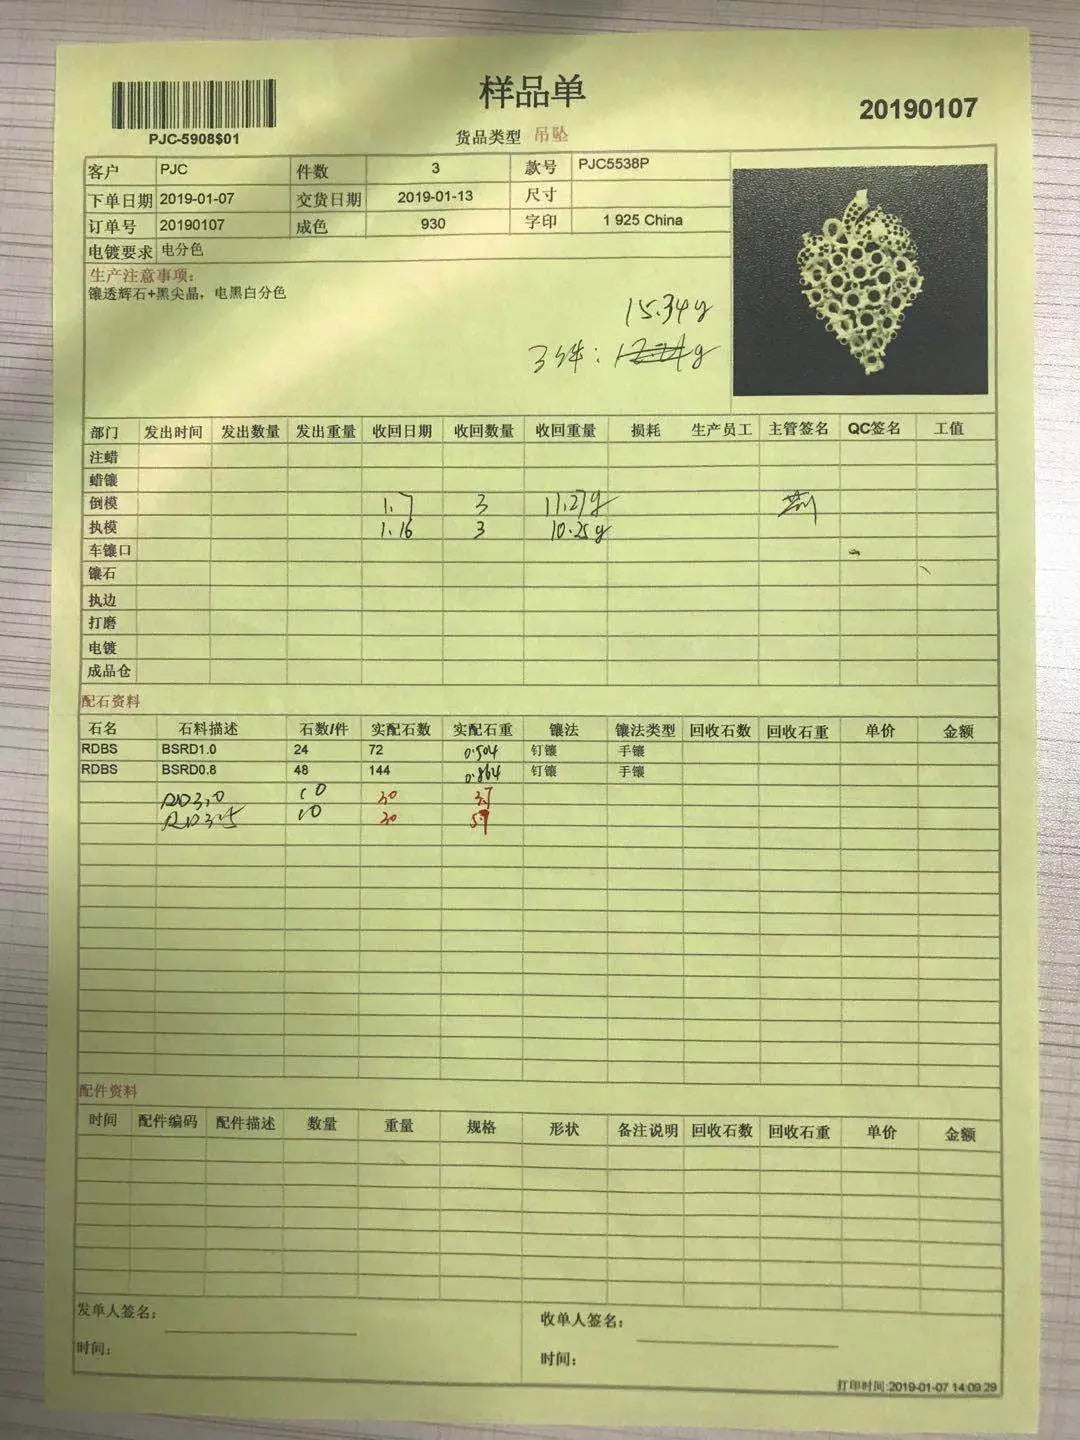 样品单
20190107
PJC-5908$01
货品类型 吊坠
客户 PJC 件数 3 款号 PJC5538P
下单日期 2019-01-07 交货日期 2019-01-13 尺寸
订单号 20190107 成色 930 字印 1 925 China
电镀要求 电分色
生产注意事项:
镶透辉石+黑尖晶，电黑白分色
15.34g
3件: g
部门 发出时间 发出数量 发出重量 收回日期 收回数量 收回重量 损耗 生产员工 主管签名 QC签名 工值
注蜡
蜡镶
倒模 1.7 3 11.27g
执模 1.16 3 10.25g
车镶口
镶石
执边
打磨
电镀
成品仓
配石资料
石名 石料描述 石数/件 实配石数 实配石重 镶法 镶法类型 回收石数 回收石重 单价 金额
RDBS BSRD1.0 24 72 0.504 钉镶 手镶
RDBS BSRD0.8 48 144 0.864 钉镶 手镶
RD3.0 10 30
RD3.5 10 30
配件资料
时间 配件编码 配件描述 数量 重量 规格 形状 备注说明 回收石数 回收石重 单价 金额
发单人签名: 收单人签名:
时间: 时间:
打印时间:2019-01-07 14:09:29